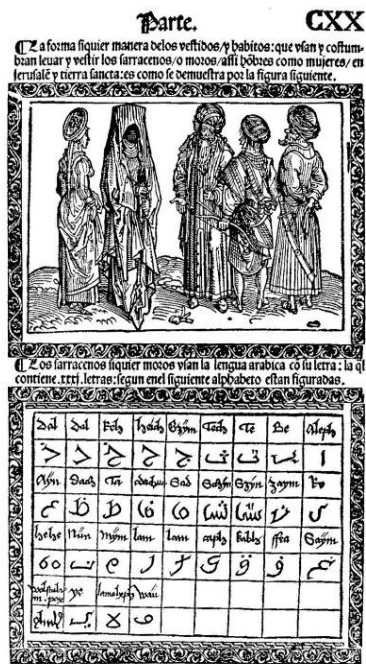 Parte. CXX
La forma siquier manera delos vestidos/y habitos: que vsan y costum-
bran leuar y vestir los sarracenos/o moros/assi hõbres como mujeres/en
jerusalẽ y tierra sancta: es como se demuestra por la figura siguiente.
Los sarracenos siquier moros vsan la lengua arabica cõ su letra: la q̃l
contiene .xxxj. letras: segun enel siguiente alphabeto estan figuradas.
Dal Dal Kch hach Gzÿm Tech Te Be Aleph
ذ د خ ح ج ث ت ب ا
Aÿn Daad Ta Sad Schÿn Szÿn zaym Re
ع ظ ط ض ص ش س ز ر
hehe Nün Mÿm lam lam caph kabh ffea Gaÿm
ه ن م ل ك ق ف غ
ye lamoleph wau
ي لا و